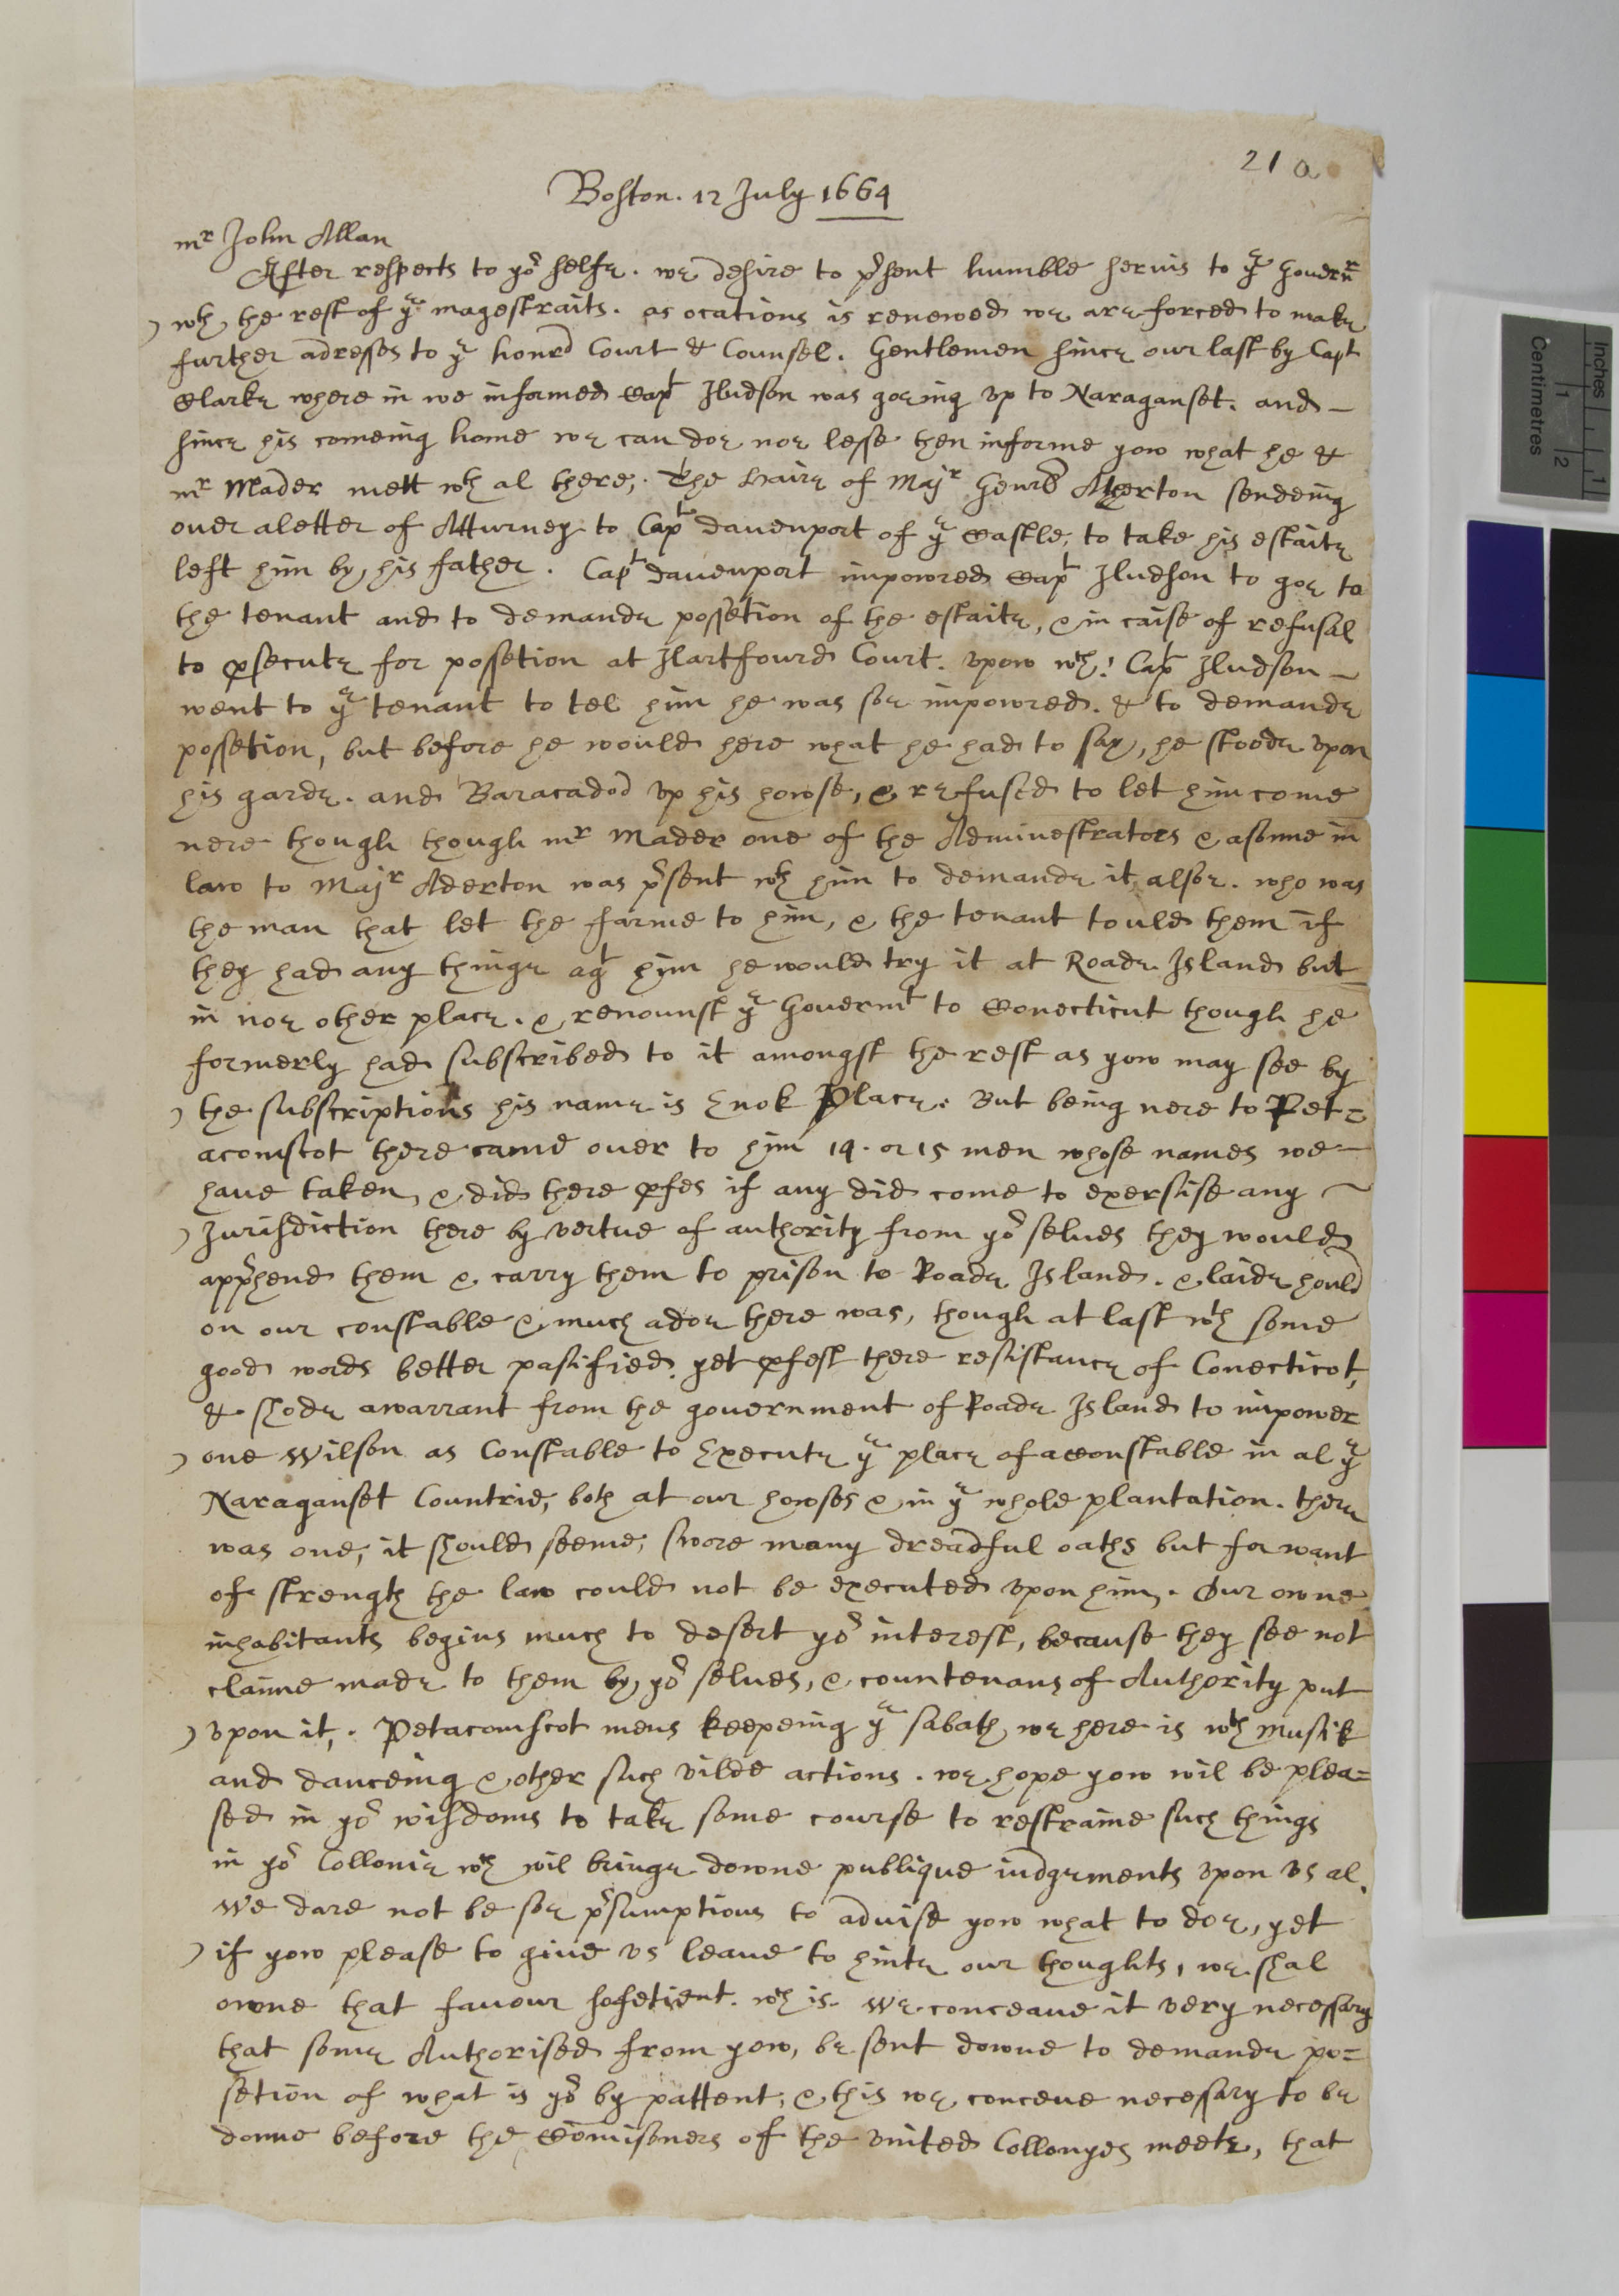 21 a
Boston. 12 July 1664
mr John Allan
After respects to yor selfe. we desire to prsent humble servis to ye Governr
wth the rest of ye magestraits. as ocations is renewed we are forced to make
further adresses to ye honrd Court & Counsel. Gentlemen since our last by Capt
Clarke where in we informed Capt Hudson was goeing vp to Naraganset. and
since his comeing home we can doe noe lesse then informe yow what he &
mr Mader mett wth al there,. The haire of Majr Genrll Atherton sendeing
ouer a letter of Atturney to Capt dauenport of ye Castle, to take his estaite
left him by his father. Capt dauenport impowred Capt Hudson to goe to
the tenant and to demande possetion of the estaite, & in caise of refusal
to psecute for possetion at Hartfourd Court. vpon wch: Capt Hudson
went to ye tenant to tel him he was soe impowred. & to demande
possetion, but before he would here what he had to say, he stoode vpon
his garde. and Baracadod vp his howse, & refused to let him come
nere though though mr Mader one of the Adminestrators & a sonne in
law to Majr Aderton was prsent wth him to demande it alsoe. who was
the man that let the farme to him, & the tenant tould them if
they had any thinge agt him he would try it at Roade Island but
in noe other place. & renounst ye Govermt to Conecticut though he
formerly had subscribed to it amongst the rest as yow may see by
the subscriptions his name is Enok Place. But being nere to Pet=
acomscot there came ouer to him 14. or 15 men whose names we
haue taken, & did there pfes if any did come to exersise any
Jurisdiction there by vertue of authority from yor selues they would
apprhend them & carry them to prison to Roade Island. & laide hould
on our constable & much adoe there was, though at last wth some
good words better pasified. yet pfest there resistance of Conecticot,
& shode a warrant from the government of Roade Island to impower
one Wilson as Constable to Execute ye place of a Constable in al ye
Naraganset Countrie, both at our howses & in ye whole plantation. there
was one, it should seeme, swore many dreadful oaths but for want
of strength the law could not be executed vpon him. Our owne
inhabitants begins much to desert yor interest, because they see not
claime made to them by yor selues, & countenans of Authority put
vpon it,. Petacomscot mens keepeing ye sabath we here is wth musik
and danceing & other such vilde actions. we hope yow wil be plea=
sed in yor wisdoms to take some course to restraine such things
in yor Collonie wch wil bringe downe publique iudgements vpon vs al.
We dare not be soe prsumptious to aduise yow what to doe, yet
if yow please to giue vs leaue to hinte our thoughts, we shal
owne that fauour sofetient. wch is. We conceaue it very necessary
that some Authorised from yow, be sent downe to demande po=
setion of what is yors by pattent, & this we conceue necesary to be
donne before the Comisoners of the vnited Collonyes meete, that
Inches
1
Centimetres
1
2